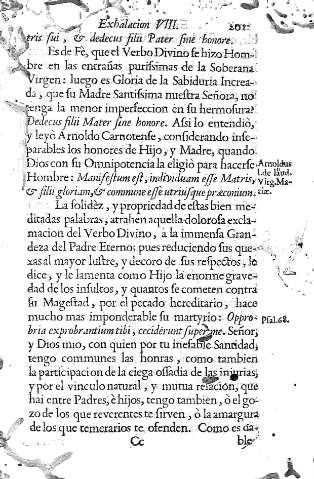 Exhalacion VIII. 201.
tris sui, & dedecus filii Pater sine honore.
Es de Fè, que el Verbo Divino se hizo Hom-
bre en las entrañas purissimas de la Soberana
Virgen: luego es Gloria de la Sabiduria Increa-
da, que su Madre Santissima nuestra Señora, no
tenga la menor imperfeccion en su hermosura:
Dedecus filii Mater sine honore. Assi lo entendiò,
y leyò Arnoldo Carnotense, considerando inse-
parables los honores de Hijo, y Madre, quando
Dios con su Omnipotencia la eligiò para hacerse
Hombre: Manifestum est, individuam esse Matris,
& filii gloriam, & commune esse utriusque præconium.
Arnoldus
l. de laud.
Virg. Ma-
riæ.
La solidèz, y propriedad de estas bien me-
ditadas palabras, atrahen aquella dolorosa excla-
macion del Verbo Divino, à la immensa Gran-
deza del Padre Eterno; pues reduciendo sus que-
xas al mayor lustre, y decoro de sus respectos, le
dice, y le lamenta como Hijo la enorme grave-
dad de los insultos, y quantos se cometen contra
su Magestad, por el pecado hereditario, hace
mucho mas imponderable su martyrio: Oppro-
bria exprobrantium tibi, ceciderunt super me. Señor,
Psal. 68.
y Dios mio, con quien por tu inefable Santidad,
tengo communes las honras, como tambien
la participacion de la ciega ossadia de las injurias;
y por el vinculo natural, y mutua relacion, que
hai entre Padres, è hijos, tengo tambien, ò el go-
zo de los que reverentes te sirven, ò la amargura
de los que temerarios te ofenden. Como es da-
Cc ble